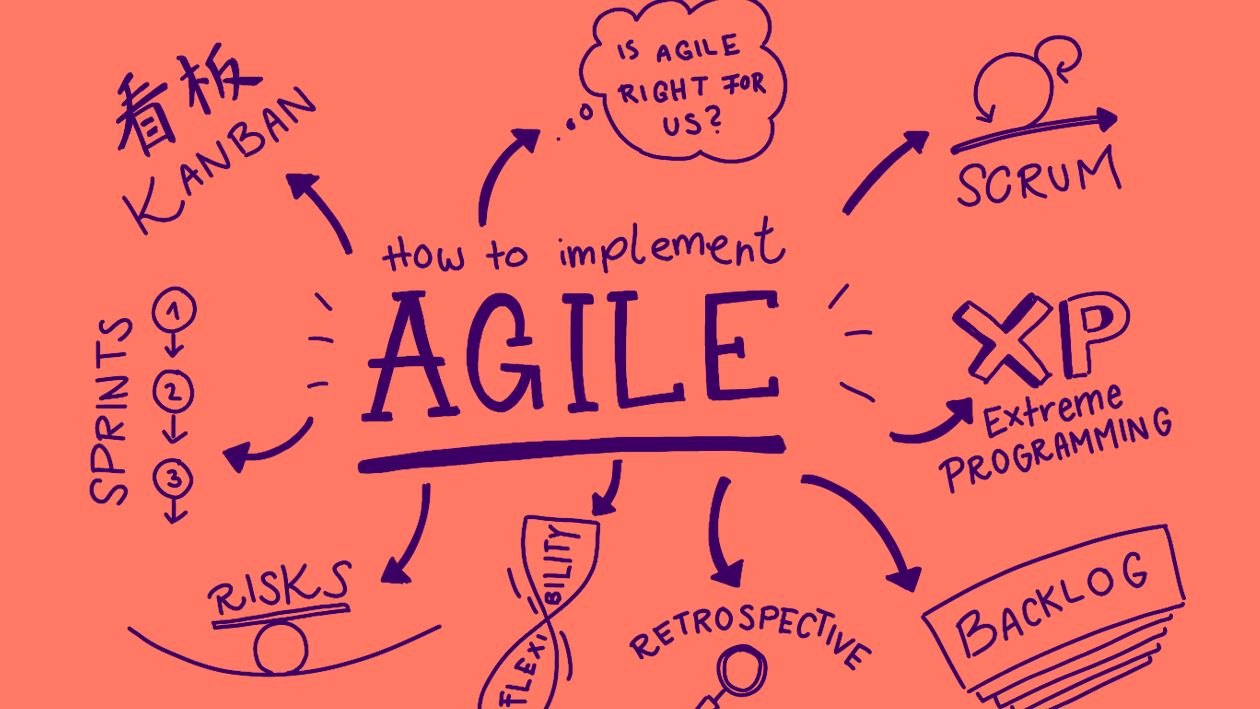 看板
KANBAN
IS AGILE
RIGHT FOR
US?
SCRUM
How to implement
AGILE
SPRINTS
1
2
3
XP
Extreme
PROGRAMMING
RISKS
FLEXIBILITY
RETROSPECTIVE
BACKLOG